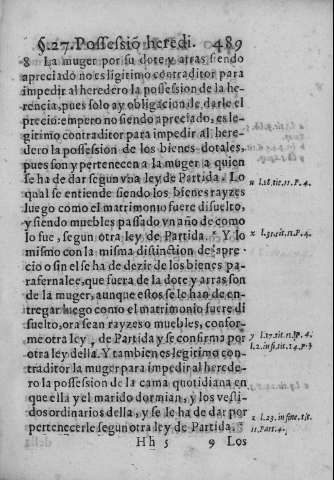 §.27. Possessiō heredi. 489
8 La muger por su dote y arras, siendo
apreciado no es ligitimo contraditor para
impedir al heredero la possession de la he-
rencia, pues solo ay obligacion de darle el
precio: empero no siendo apreciado, es le-
gitimo contraditor para impedir al here-
dero la possession de los bienes dotales,
pues son y pertenecen a la muger a quien
se ha de dar segun vna ley de Partida. Lo
qual se entiende siendo los bienes rayzes
luego como el matrimonio fuere disuelto,
y siendo muebles passado vn año de como
lo fue, segun otra ley de Partida. x Y lo
mismo con la misma distinction de apre-
cio o sin el se ha de dezir de los bienes pa-
rafernales, que fuera de la dote y arras son
de la muger, aunque estos se le han de en-
tregar luego como el matrimonio fuere di
suelto, ora sean rayzes o muebles, confor-
me otra ley y de Partida y se confirma por
otra ley della. Y tambien es legitimo con-
traditor la muger para impedir al herede-
ro la possession de la cama quotidiana en
que ella y el marido dormian, y los vesti-
dos ordinarios della, y se le ha de dar por
pertenecerle segun otra ley de Partida. z
H h 5 9 Los
u l.18.tit.11.P.4.
x l.31.tit.11.P.4.
y l.17.tit.11.p.4.
l.2.in fi.tit.14.p.3
z l.23. in fine.tit.
11.Part.4.